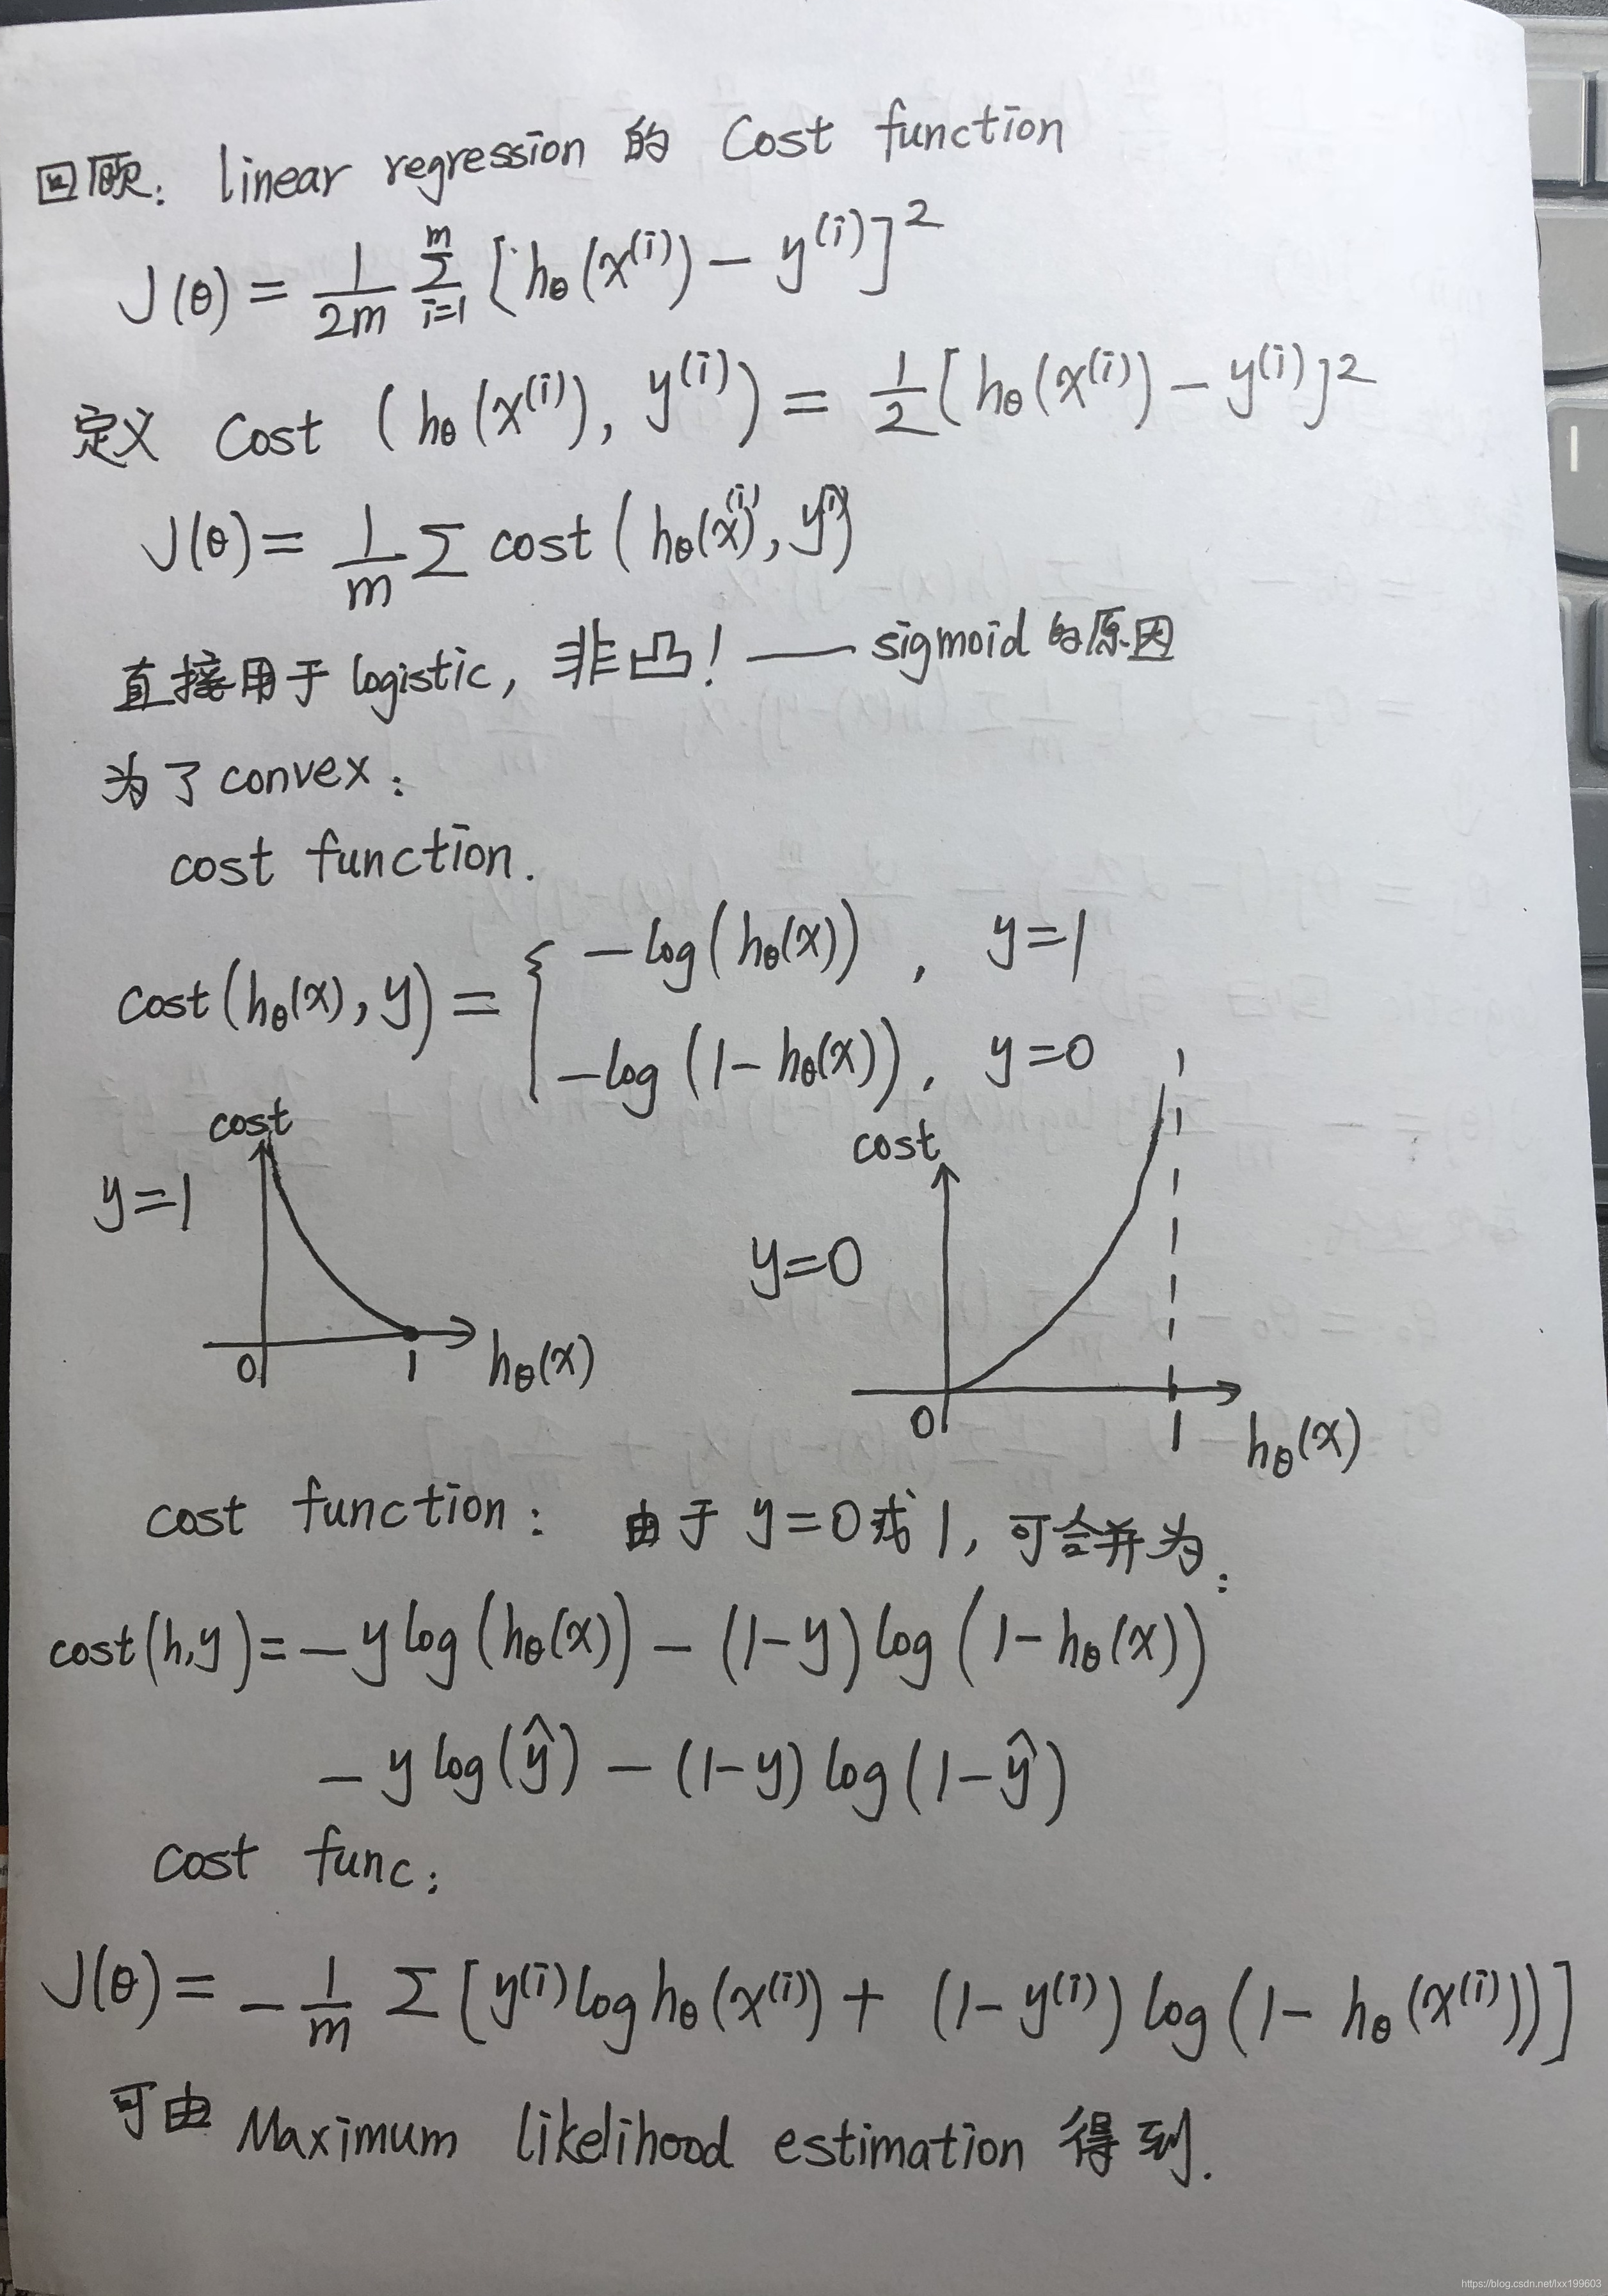 回顾: linear regression 的 Cost function
J(θ) = 1/2m Σ_{i=1}^{m} [h_θ(x^(i)) - y^(i)]²
定义 Cost (h_θ(x^(i)), y^(i)) = 1/2 [h_θ(x^(i)) - y^(i)]²
J(θ) = 1/m Σ cost (h_θ(x^(i)), y^(i))
直接用于 logistic, 非凸! —— sigmoid 的原因
为了 convex:
cost function.
cost(h_θ(x), y) = { -log(h_θ(x)), y=1
-log(1-h_θ(x)), y=0
cost
y=1
0 1 h_θ(x)
cost
y=0
0 1 h_θ(x)
cost function: 由于 y=0或1, 可合并为:
cost(h,y) = -y log(h_θ(x)) - (1-y) log(1-h_θ(x))
-y log(ŷ) - (1-y) log(1-ŷ)
cost func:
J(θ) = -1/m Σ [y^(i) log h_θ(x^(i)) + (1-y^(i)) log(1-h_θ(x^(i)))]
可由 Maximum likelihood estimation 得到.
https://blog.csdn.net/lxx199603